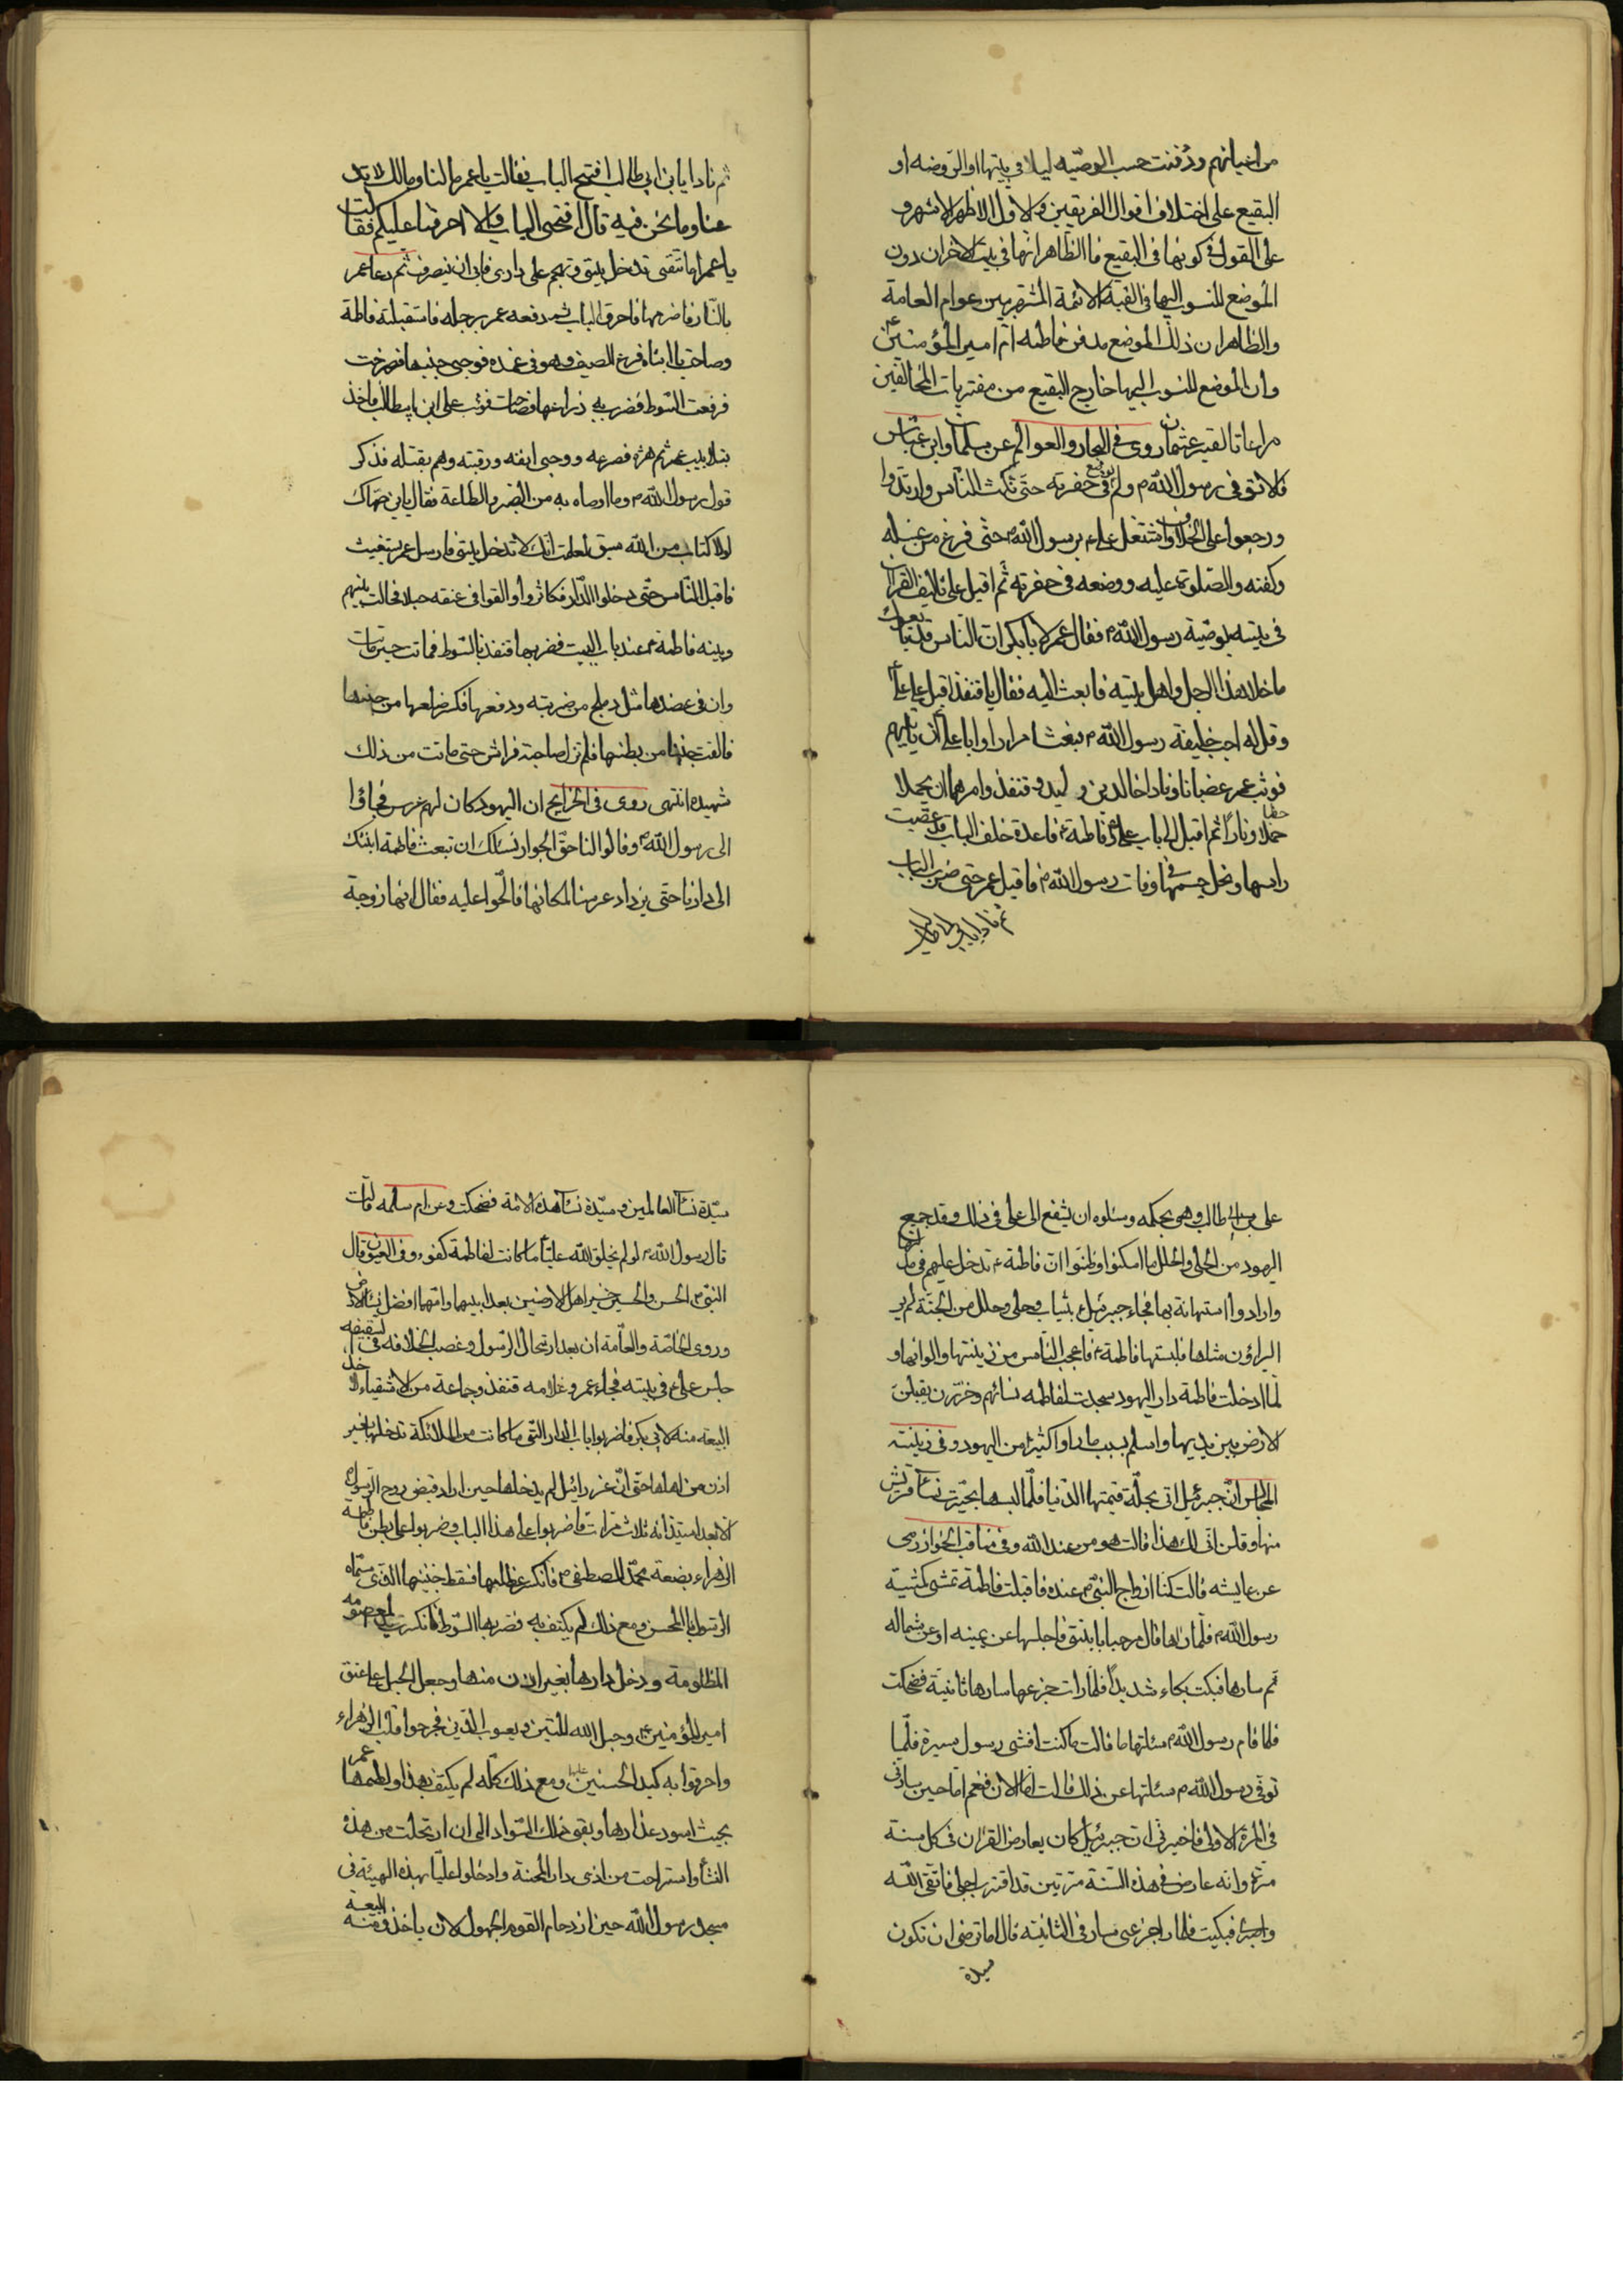 من اخيانهم ودُفنت حسب الوصيّه ليلا في بيتها او الروضه او
البقيع على اختلاف اقوال الفريقين والاول الاظهر الاشهر و
على القول في كونها في البقيع فا الظاهر انها في بيت الاخران دون
الموضع المنسوب اليها في القبة كالائمة المشتهر بين عوام العامة
والظاهران ذلك الموضع مدفن فاطمه ام امير المؤمنين ع
وان الموضع المنسوب اليها خارج البقيع من مفتريات المخالفين
مراعاتا لقبر عثمان روى في البحار والعوالم عن سلمان وابن عباس
قالا توفى رسول الله ص ولم يوضع في حفرته حتى نكث الناس وارتدوا
ورجعوا على الخلاف واشتغل على ع برسول الله ص حتى فرغ من غسله
وكفنه والصلوة عليه ووضعه في حفرته ثم اقبل على تاليف القران
في بيته بوصية رسول الله ص فقال عمر لابابكر ان الناس قد بايعوك
ما خلا هذا الرجل واهل بيته فابعث اليه فقال يا قنفذ اقبل على على ع
وقل له اجب خليفة رسول الله ص فبعثا مرارا وابا على ان ياتيهم
فوثب عمر غضبانا ونادا خالد بن وليد و قنفذ وامرهما ان يحملا
حطبا ونارا ثم اقبل الى باب على ع وفاطمة ع قاعدة خلف الباب قد عصبت
راسها ونحل جسمها في وفات رسول الله ص فاقبل عمر حتى ضرب الباب
ثم نادا يابن ابي طالب
ثم نادا يابن ابي طالب افتح الباب فقالت يا عمر ما لنا ومالك لا تدعنا
عنا وما نحن فيه قال افتحى الباب والا احرقنا عليكم فقالت
يا عمر اما تتقى تدخل بيتى وتهجم على دارى فابى ان ينصرف ثم دعا عمر
بالنار فاضرمها فاحرق الباب ثم دفعه عمر برجله فاستقبلته فاطمة
وصاحت يا ابتاه فرفع السيف وهو فى غمده فوجى جنبها فصرخت
فرفعت السوط فضرب به ذراعها فصاحت فوثب على ابن ابيطالب فاخذ
بتلابيب عمر ثم هزه فصرعه ووجى انفه ورقبته وهم بقتله فذكر
قول رسول الله ص وما اوصاه به من الصبر والطاعة فقال يا بن صهاك
لولا كتاب من الله سبق لعلمت انك لا تدخل بيتى فارسل عمر يستغيث
فاقبل الناس حتى دخلوا الدار فكاثروا والقوا فى عنقه حبلا فحالت بينهم
وبينه فاطمة ع عند باب البيت فضربها قنفذ بالسوط فماتت حين ماتت
وان فى عضدها مثل دملج من ضربته ودفعها فكسر ضلعها من جنبها
فالقت جنينا من بطنها فلم تزل صاحبة فراش حتى ماتت من ذلك
شهيده انتهى روى فى الخرايج ان اليهود كان لهم عرس فجاؤا
الى رسول الله ص وقالوا لنا حق الجوار نسئلك ان تبعث فاطمة ابنتك
الى دارنا حتى يزداد عرسنا لمكانها فالحوا عليه فقال انها زوجة
على بن ابيطالب وهى بحكمه وسئلوه ان يشفع الى على فى ذلك وقد جمع
اليهود من الحلى والحلل ما امكنوا وظنوا ان فاطمة ع تدخل عليهم فى
وارادوا استهانة بها فجاء جبرئيل بثياب وحلى وحلل من الجنة لم ير
الراؤن مثلها فلبستها فاطمة ع فاعجب الناس من زينتها والوانها و
لما دخلت فاطمة دار اليهود سجدت لفاطمه نسائهم وخررن يقبلن
الارض بين يديها واسلم بسبب ما راوا كثيرا من اليهود وفى زينته
المجالس ان جبرئيل اتى بحلة قيمتها الدنيا فلما لبسها تحيّرت نساء قريش
منها وقلن انى لك هذا قالت هو من عند الله وفى مناقب الخوارزمى
عن عايشه قالت كنا ازواج النبى ص عنده فاقبلت فاطمة تمشى كمشية
رسول الله ص فلما راها قال مرحبا بابنتى فاجلسها عن يمينه او عن شماله
ثم سارها فبكت بكاء شديدا فلما رات جزعها سارها ثانية فضحكت
فلما قام رسول الله ص سئلتها ما قالت ما كنت افشى رسول سيرة فلما
توفى رسول الله ص سئلتها عن ذلك قالت اما الان فنعم اما حين سارنى
فى المرة الاولى فاخبرنى ان جبرئيل كان يعارض القران فى كل سنة
مرة وانه عارض فى هذه السنة مرتين قد اقترب اجلى فاتقى الله
واصبرى فبكيت فلما راى جزعى سارنى الثانية قال اما ترضى ان تكون
سيدة
سيّدة نساء العالمين و سيّدة نساء هذه الامة فضحكت وعن ام سلمه قالت
قال رسول الله ص لو لم يخلق الله عليا ما كانت لفاطمة كفوء وفى العيون قال
النبى ص الحسن والحسين خير اهل الارضين بعدابيهما وامهما افضل نساء الارض
وروى الخاصّة والعامّة ان بعد ارتحال الرسول وغصب الخلافه فى السقيفه
جلس على ع فى بيته فجاء عمر و غلامه قنفذ وجماعة من الاشقياء لاخذ
البيعه منه لابى بكر فاضربوا باب الدار التى ما كانت من الملائكة تدخلها بغير
اذن من اهلها حتى ان عزرائيل لم يدخلها حين اراد قبض روح الرسول
الا بعد استيذانه ثلاث مرات فاضربوا على هذا الباب وضربوا على بطن فاطمة
الزهراء بضعة محمد المصطفى ص فانكسر ضلعها فسقط جنينها الذى سماه
الرسول ص بالمحسن ومع ذلك لم يكتف به فضربها السوط فانكسرت المعصومه
المظلومة ودخل دارها بغير اذن منها وجعل الحبل على عنق
امير المؤمنين ع وحبل الله المتين ويعسوب الدين فجرحوا قلب الزهراء
واحرقوا به كبد الحسنين عليهما ومع ذلك كله لم يكتف بهذا ولطمها عمر
بحيث اسود عذارها وبقى ذلك السواد الى ان ارتحلت من هذه
النشأ واستراحت من اذى دار المحنة وادخلوا عليّا بهذه الهيئة فى
مسجد رسول الله حين ازدحام القوم الجهول لان ياخذوا منه البيعة